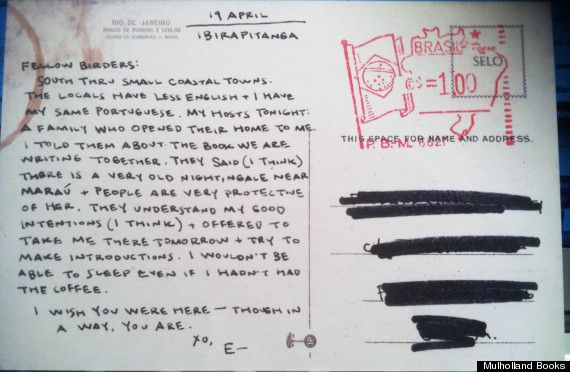 RIO DE JANEIRO
19 APRIL
IBIRAPITANGA
FELLOW BIRDERS:
SOUTH THRU SMALL COASTAL TOWNS.
THE LOCALS HAVE LESS ENGLISH + I HAVE
MY SAME PORTUGUESE. MY HOSTS TONIGHT:
A FAMILY WHO OPENED THEIR HOME TO ME.
I TOLD THEM ABOUT THE BOOK WE ARE
WRITING TOGETHER. THEY SAID (I THINK)
THERE IS A VERY OLD NIGHTINGALE NEAR
MARAÚ + PEOPLE ARE VERY PROTECTIVE
OF HER. THEY UNDERSTAND MY GOOD
INTENTIONS (I THINK) + OFFERED TO
TAKE ME THERE TOMORROW + TRY TO
MAKE INTRODUCTIONS. I WOULDN'T BE
ABLE TO SLEEP EVEN IF I HADN'T HAD
THE COFFEE.
I WISH YOU WERE HERE — THOUGH IN
A WAY, YOU ARE.
XO,
E—
BRASIL
SELO
=1,00
THIS SPACE FOR NAME AND ADDRESS.
P.B.M.
Mulholland Books